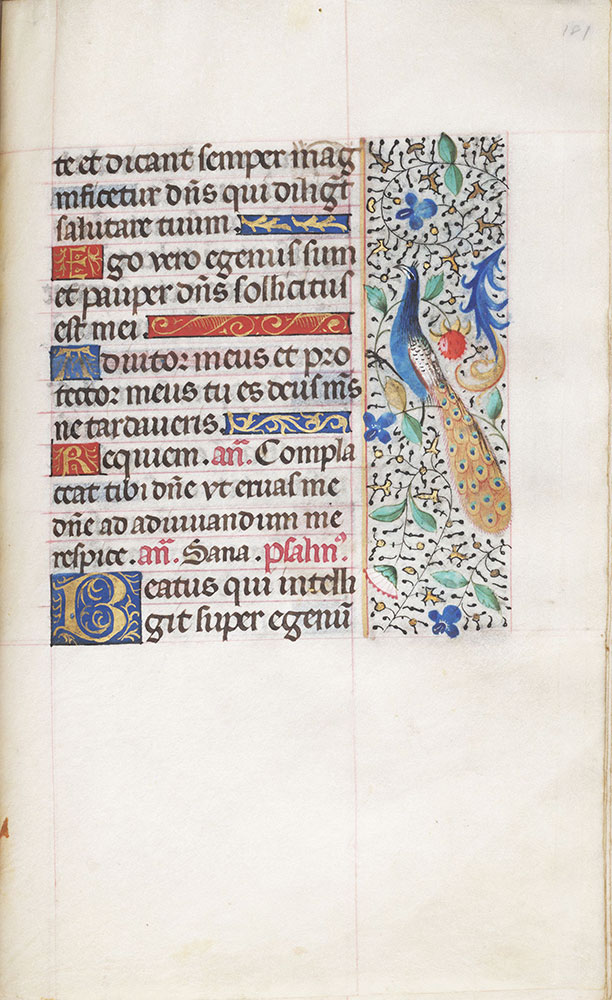 181
te et dicant semper mag
nificetur dñs qui diligũt
salutare tuum.
Ego vero egenus sum
et pauper dñs sollicitus
est mei.
Adiutor meus et pro
tector meus tu es deus m̃s
ne tardaveris.
Requiem. añ. Compla
ceat tibi dñe vt eruas me
dñe ad adiuuandum me
respice. añ. Sana. psalm⁹.
Beatus qui intelli
git super egenũ